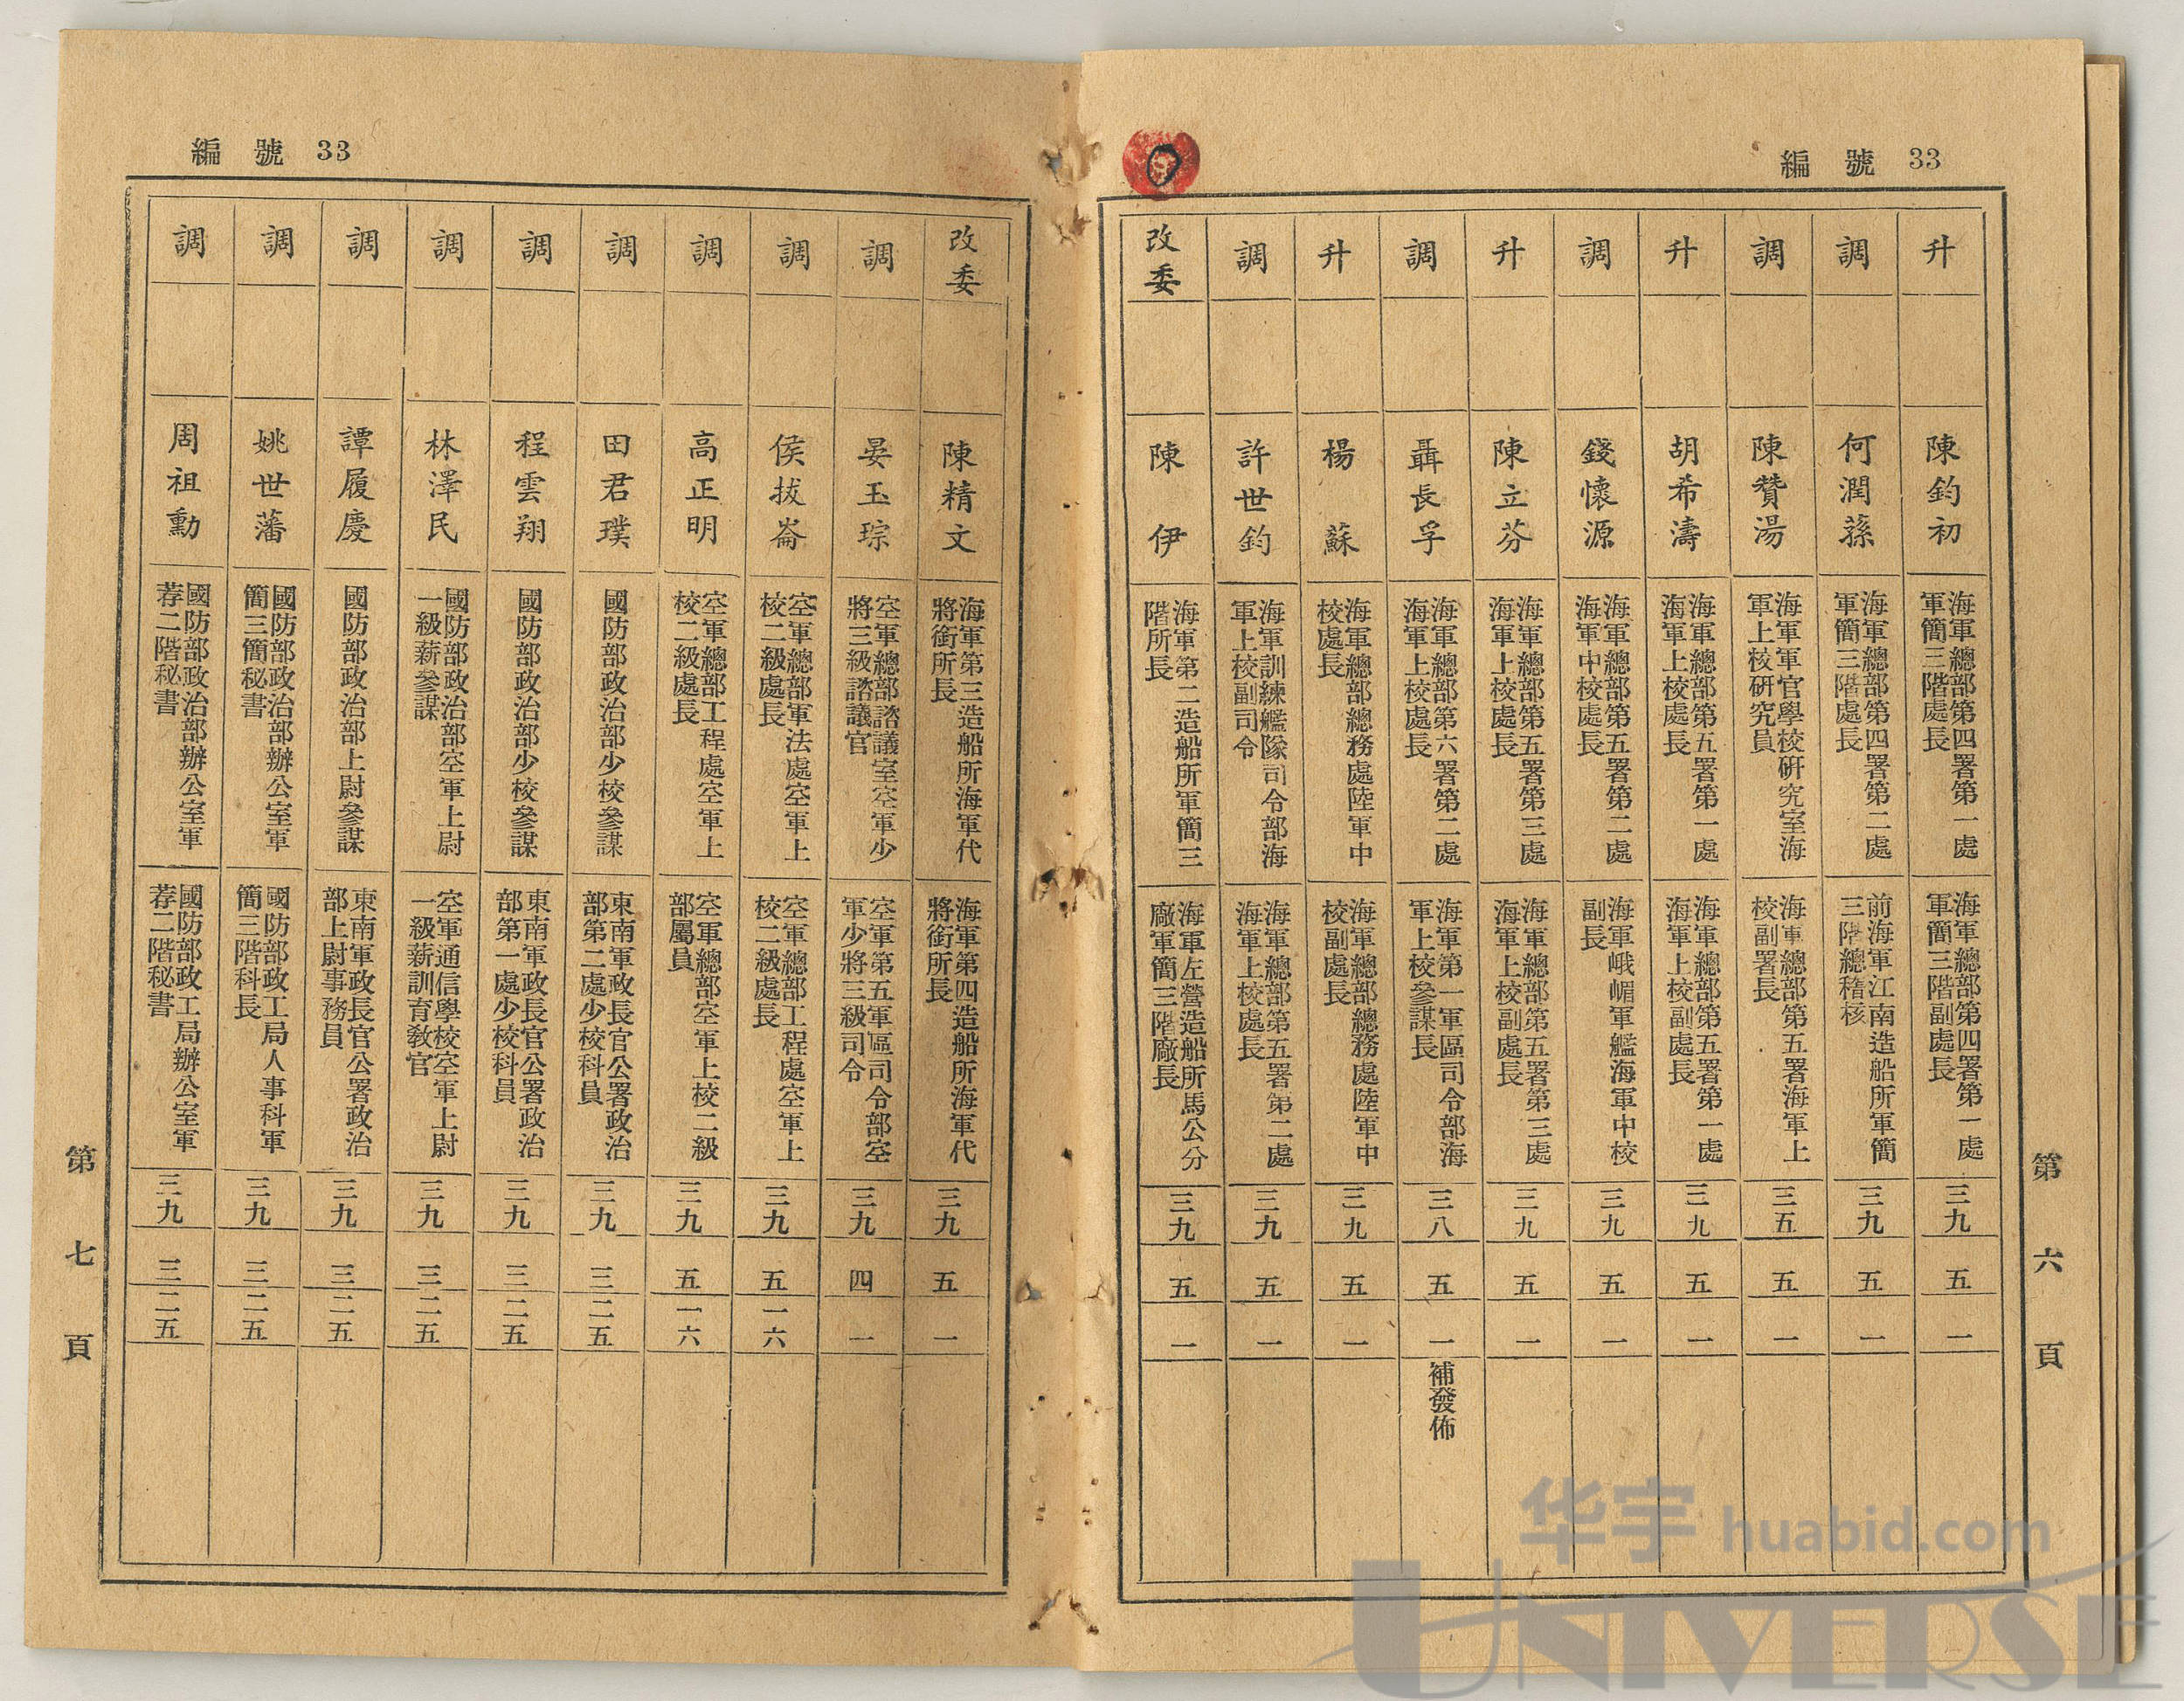 編號 33
升
陳鈞初
海軍總部第四署第一處
軍簡三階處長
海軍總部第四署第一處
軍簡三階副處長
三九
五
一
調
何潤蓀
海軍總部第四署第二處
軍簡三階處長
前海軍江南造船所軍簡
三階總稽核
三九
五
一
調
陳贊湯
海軍軍官學校研究室海
軍上校研究員
海軍總部第五署海軍上
校副署長
三五
五
一
升
胡希濤
海軍總部第五署第一處
海軍上校處長
海軍總部第五署第一處
海軍上校副處長
三九
五
一
調
錢懷源
海軍總部第五署第二處
海軍中校處長
海軍峨嵋軍艦海軍中校
副長
三九
五
一
升
陳立芬
海軍總部第五署第三處
海軍上校處長
海軍總部第五署第三處
海軍上校副處長
三九
五
一
調
聶長孚
海軍總部第六署第二處
海軍上校處長
海軍第一軍區司令部海
軍上校參謀長
三八
五
一
補發佈
升
楊蘇
海軍總部總務處陸軍中
校處長
海軍總部總務處陸軍中
校副處長
三九
五
一
調
許世鈞
海軍訓練艦隊司令部海
軍上校副司令
海軍總部第五署第二處
海軍上校處長
三九
五
一
改委
陳伊
海軍第二造船所軍簡三
階所長
海軍左營造船所馬公分
廠軍簡三階廠長
三九
五
一
第六頁
編號 33
改委
陳精文
海軍第三造船所海軍代
將銜所長
海軍第四造船所海軍代
將銜所長
三九
五
一
調
晏玉琮
空軍總部諮議室空軍少
將三級諮議官
空軍第五軍區司令部空
軍少將三級司令
三九
四
一
調
侯拔崙
空軍總部軍法處空軍上
校二級處長
空軍總部工程處空軍上
校二級處長
三九
五
一六
調
高正明
空軍總部工程處空軍上
校二級處長
空軍總部空軍上校二級
部屬員
三九
五
一六
調
田君璞
國防部政治部少校參謀
東南軍政長官公署政治
部第二處少校科員
三九
三
二五
調
程雲翔
國防部政治部少校參謀
東南軍政長官公署政治
部第一處少校科員
三九
三
二五
調
林澤民
國防部政治部空軍上尉
一級薪參謀
空軍通信學校空軍上尉
一級薪訓育教官
三九
三
二五
調
譚履慶
國防部政治部上尉參謀
東南軍政長官公署政治
部上尉事務員
三九
三
二五
調
姚世藩
國防部政治部辦公室軍
簡三簡秘書
國防部政工局人事科軍
簡三階科長
三九
三
二五
調
周祖勳
國防部政治部辦公室軍
荐二階秘書
國防部政工局辦公室軍
荐二階秘書
三九
三
二五
第七頁
华宇 huabid.com
UNIVERSE